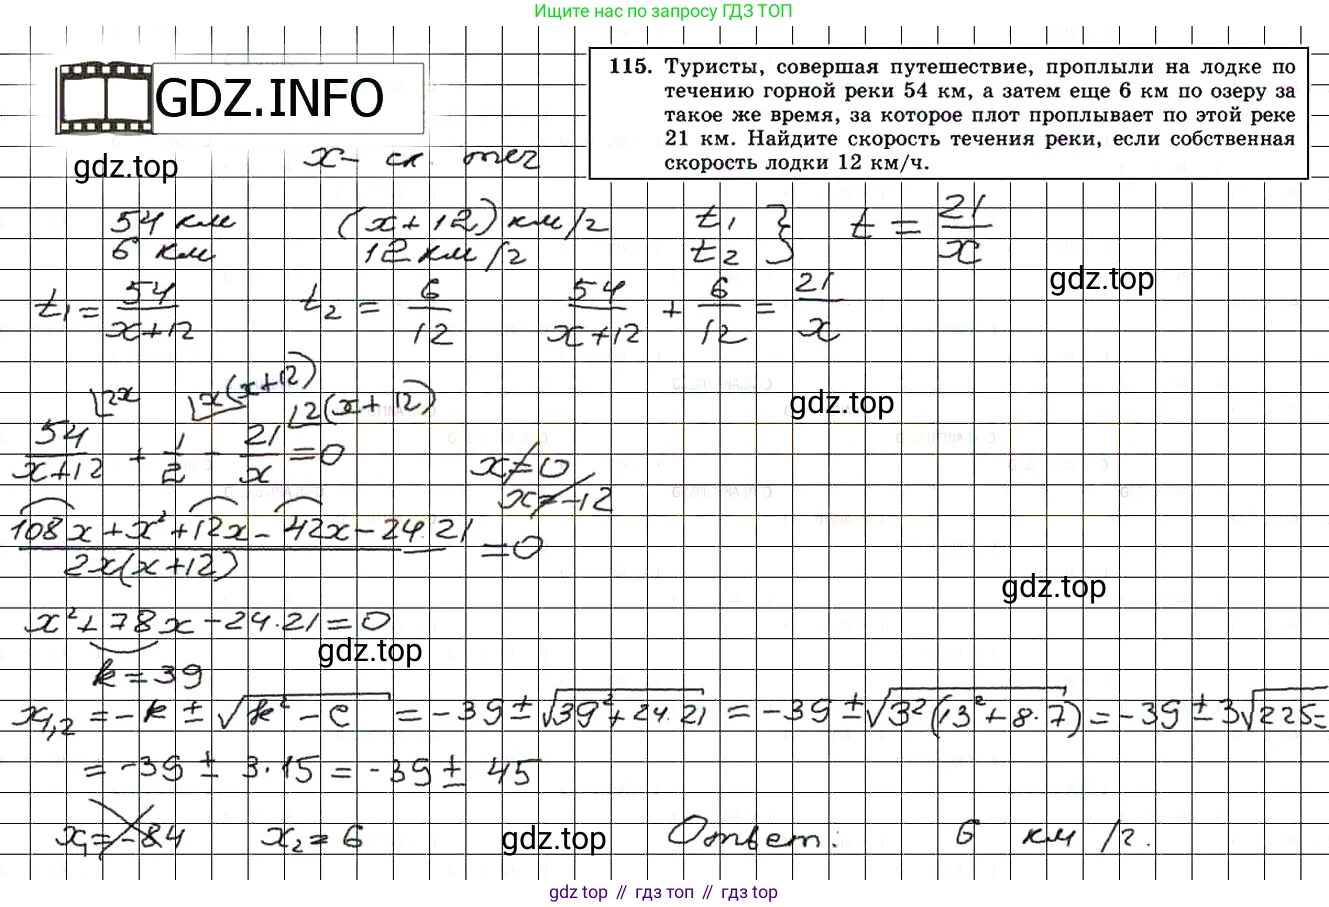 Ищите нас по запросу ГДЗ ТОП
GDZ.INFO
gdz.top
115. Туристы, совершая путешествие, проплыли на лодке по
течению горной реки 54 км, а затем еще 6 км по озеру за
такое же время, за которое плот проплывает по этой реке
21 км. Найдите скорость течения реки, если собственная
скорость лодки 12 км/ч.
x – ск. теч
54 км (x+12) км/г t₁ } t = 21/x
6 км 12 км/г t₂
gdz.top
t₁ = 54/(x+12) t₂ = 6/12 54/(x+12) + 6/12 = 21/x
2x x(x+12) 2(x+12)
gdz.top
54/(x+12) + 1/2 - 21/x = 0 x≠0
x≠-12
(108x + x² + 12x - 42x - 24·21)/(2x(x+12)) = 0
gdz.top
x² + 78x - 24·21 = 0
gdz.top
k = 39
x₁,₂ = -k ± √(k² - c) = -39 ± √(39² + 24·21) = -39 ± √(3²(13² + 8·7)) = -39 ± 3√225 =
= -39 ± 3·15 = -39 ± 45
x₁ = -84 x₂ = 6 gdz.top Ответ: 6 км/г.
gdz top // гдз топ // gdz top